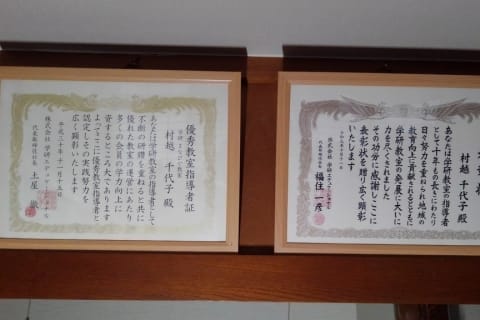 優秀教室指導者証
村越 千代子 殿
あなたは学研教室の指導者として
不断の研鑽を重ねると共に
優れた教室の運営にあたり
多くの会員の学力向上に
資するところ大であります
よってここに優秀教室指導者と
認定しその実践努力を
広く顕彰いたします
平成三十年十一月十五日
株式会社 学研エデュケーショナル
代表取締役社長 土屋 徹
村越 千代子 殿
あなたは学研教室の指導者
として十年もの長きにわたり
日々努力を重ねられ地域の
教育向上に貢献されるとともに
学研教室の発展に大いに
力を尽くされました
その功労に感謝しここに
表彰状を贈り広く顕彰
いたします
株式会社 学研エデュケーショナル
代表取締役社長 福住 一彦